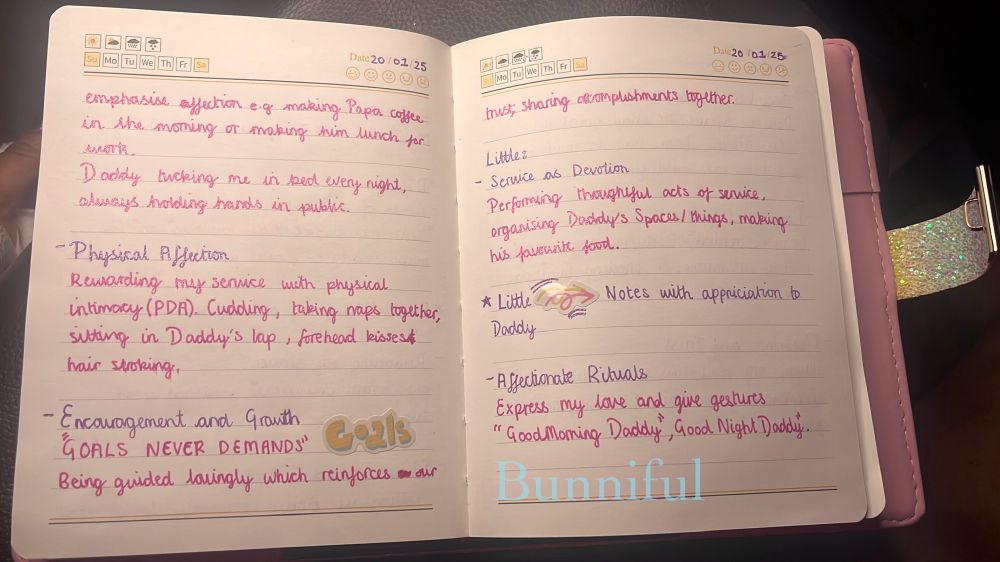 Su Mo Tu We Th Fr Sa
Date 20/01/25
emphasise affection e.g making Papa coffee
in the morning or making him lunch for
work.
Daddy tucking me in bed every night,
always holding hands in public.
- Physical Affection
Rewarding my service with physical
intimacy (PDA). Cuddling, taking naps together,
sitting in Daddy's lap, forehead kisses &
hair stroking.
- Encouragement and Growth
"GOALS NEVER DEMANDS"
Goals
Being guided lovingly which reinforces our
Su Mo Tu We Th Fr Sa
Date 20/01/25
trust, sharing accomplishments together.
Little:
- Service as Devotion
Performing thoughtful acts of service,
organising Daddy's Spaces/things, making
his favourite food.
★ Little Notes with appriciation to
Daddy
- Affectionate Rituals
Express my love and give gestures
"GoodMorning Daddy", Good Night Daddy".
Bunniful